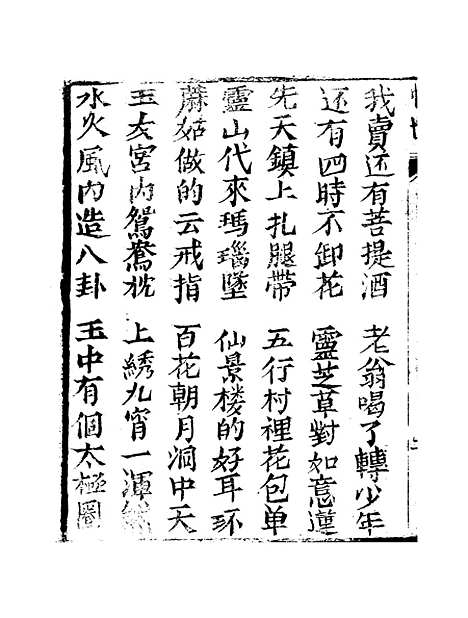 我賣还有菩提酒　老翁喝了轉少年
还有四時不卸花　靈芝草對如意蓮
先天鎮上扎腿带　五行村裡花包单
靈山代來瑪瑙墜　仙景楼的好耳环
蔴姑做的云戒指　百花朝月洞中天
玉衣宮内鴛鴦枕　上綉九宵一渾
水火風内造八卦　玉中有個太極圈